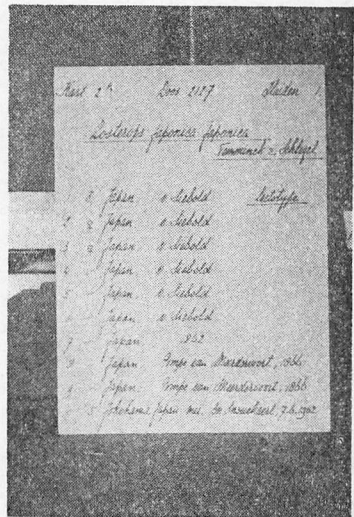 Kast 2 Doos 2127 Bladen 1.
Zosterops japonica japonica
Temminck & Schlegel
1 Japan v. Siebold lectotype
2 Japan v. Siebold
3 Japan v. Siebold
4 Japan v. Siebold
5 Japan v. Siebold
Japan v. Siebold
7 Japan 1862
Japan Pompe van Meerdervoort, 1866
Japan Pompe van Meerdervoort, 1866
Yokohama Japan